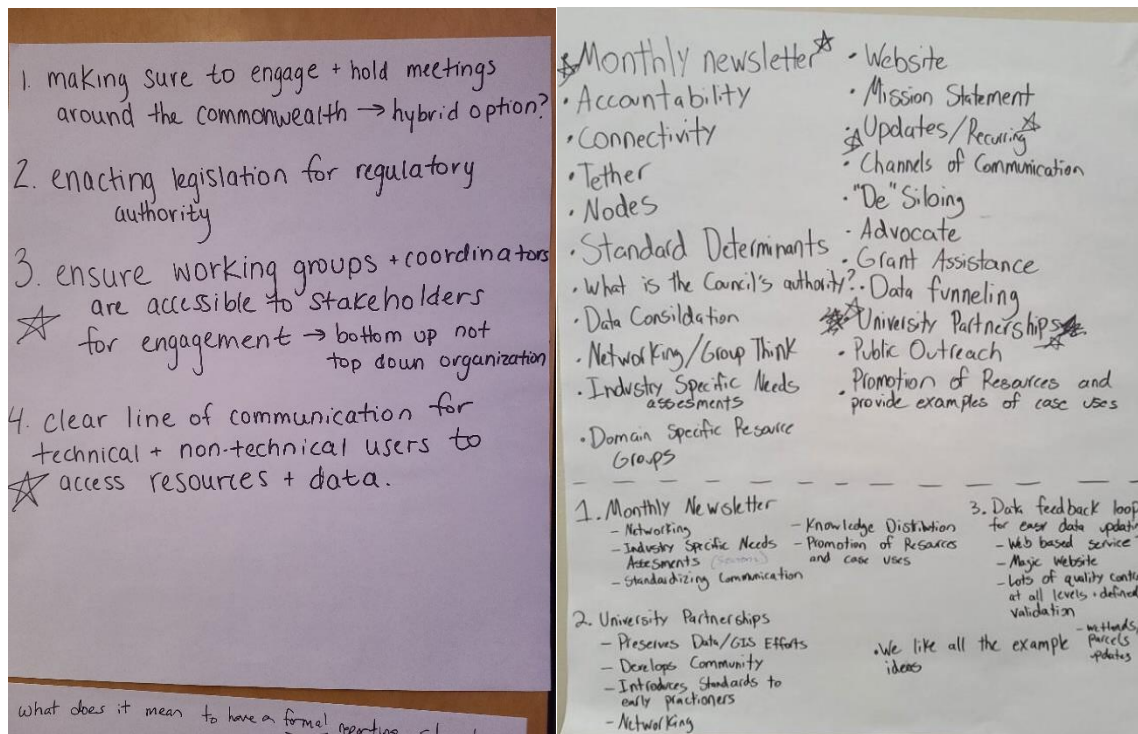 1. making sure to engage + hold meetings
around the commonwealth → hybrid option?
2. enacting legislation for regulatory
authority
3. ensure working groups + coordinators
are accessible to stakeholders
for engagement → bottom up not
top down organization
4. clear line of communication for
technical + non-technical users to
access resources + data.
what does it mean to have a formal
reporting
Monthly newsletter
• Accountability
• Connectivity
• Tether
• Nodes
• Standard Determinants
• What is the Council's authority?
• Data Consildation
• Networking/Group Think
• Industry Specific Needs
assesments
• Domain Specific Resource
Groups
• Website
• Mission Statement
• Updates/Recurring
• Channels of Communication
• "De" Siloing
• Advocate
• Grant Assistance
• Data funneling
University Partnerships
• Public Outreach
• Promotion of Resources and
provide examples of case uses
1. Monthly Newsletter
- Networking
- Industry Specific Needs
Assesments
- Standardizing Communication
- Knowledge Distibution
- Promotion of Resources
and case uses
2. University Partnerships
- Preserves Data/GIS Efforts
- Develops Community
- Introduces Standards to
early practioners
- Networking
3. Data feedback loop
for easy data updatin
- Web based service
- Magic Website
- Lots of quality contr
at all levels + define
validation
- wetlands,
parcels
updates
• We like all the example
ideas